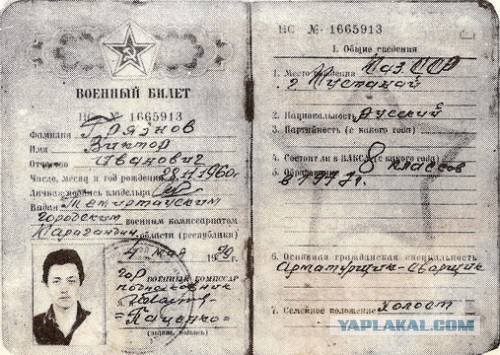 ВОЕННЫЙ БИЛЕТ
НС № 1665913
Фамилия Грязнов
Имя Виктор
Отчество Иванович
Число, месяц и год рождения 28 1960г
Личная подпись владельца
Выдан Темиртауским
городским военным комиссариатом
Караганди области (республики)
4 май
гор военный комиссар
подполковник
НС № 1665913
I. Общие сведения
1. Место рождения Каз.ССР
г Кустанай
2. Национальность Русский
3. Партийность (с какого года)
4. Состоит ли в ВЛКСМ (с какого года)
5. Образование 8 классов
в 1977г.
6. Основная гражданская специальность
Арматурщик-Сварщик
7. Семейное положение холост
YAPLAKAL.COM